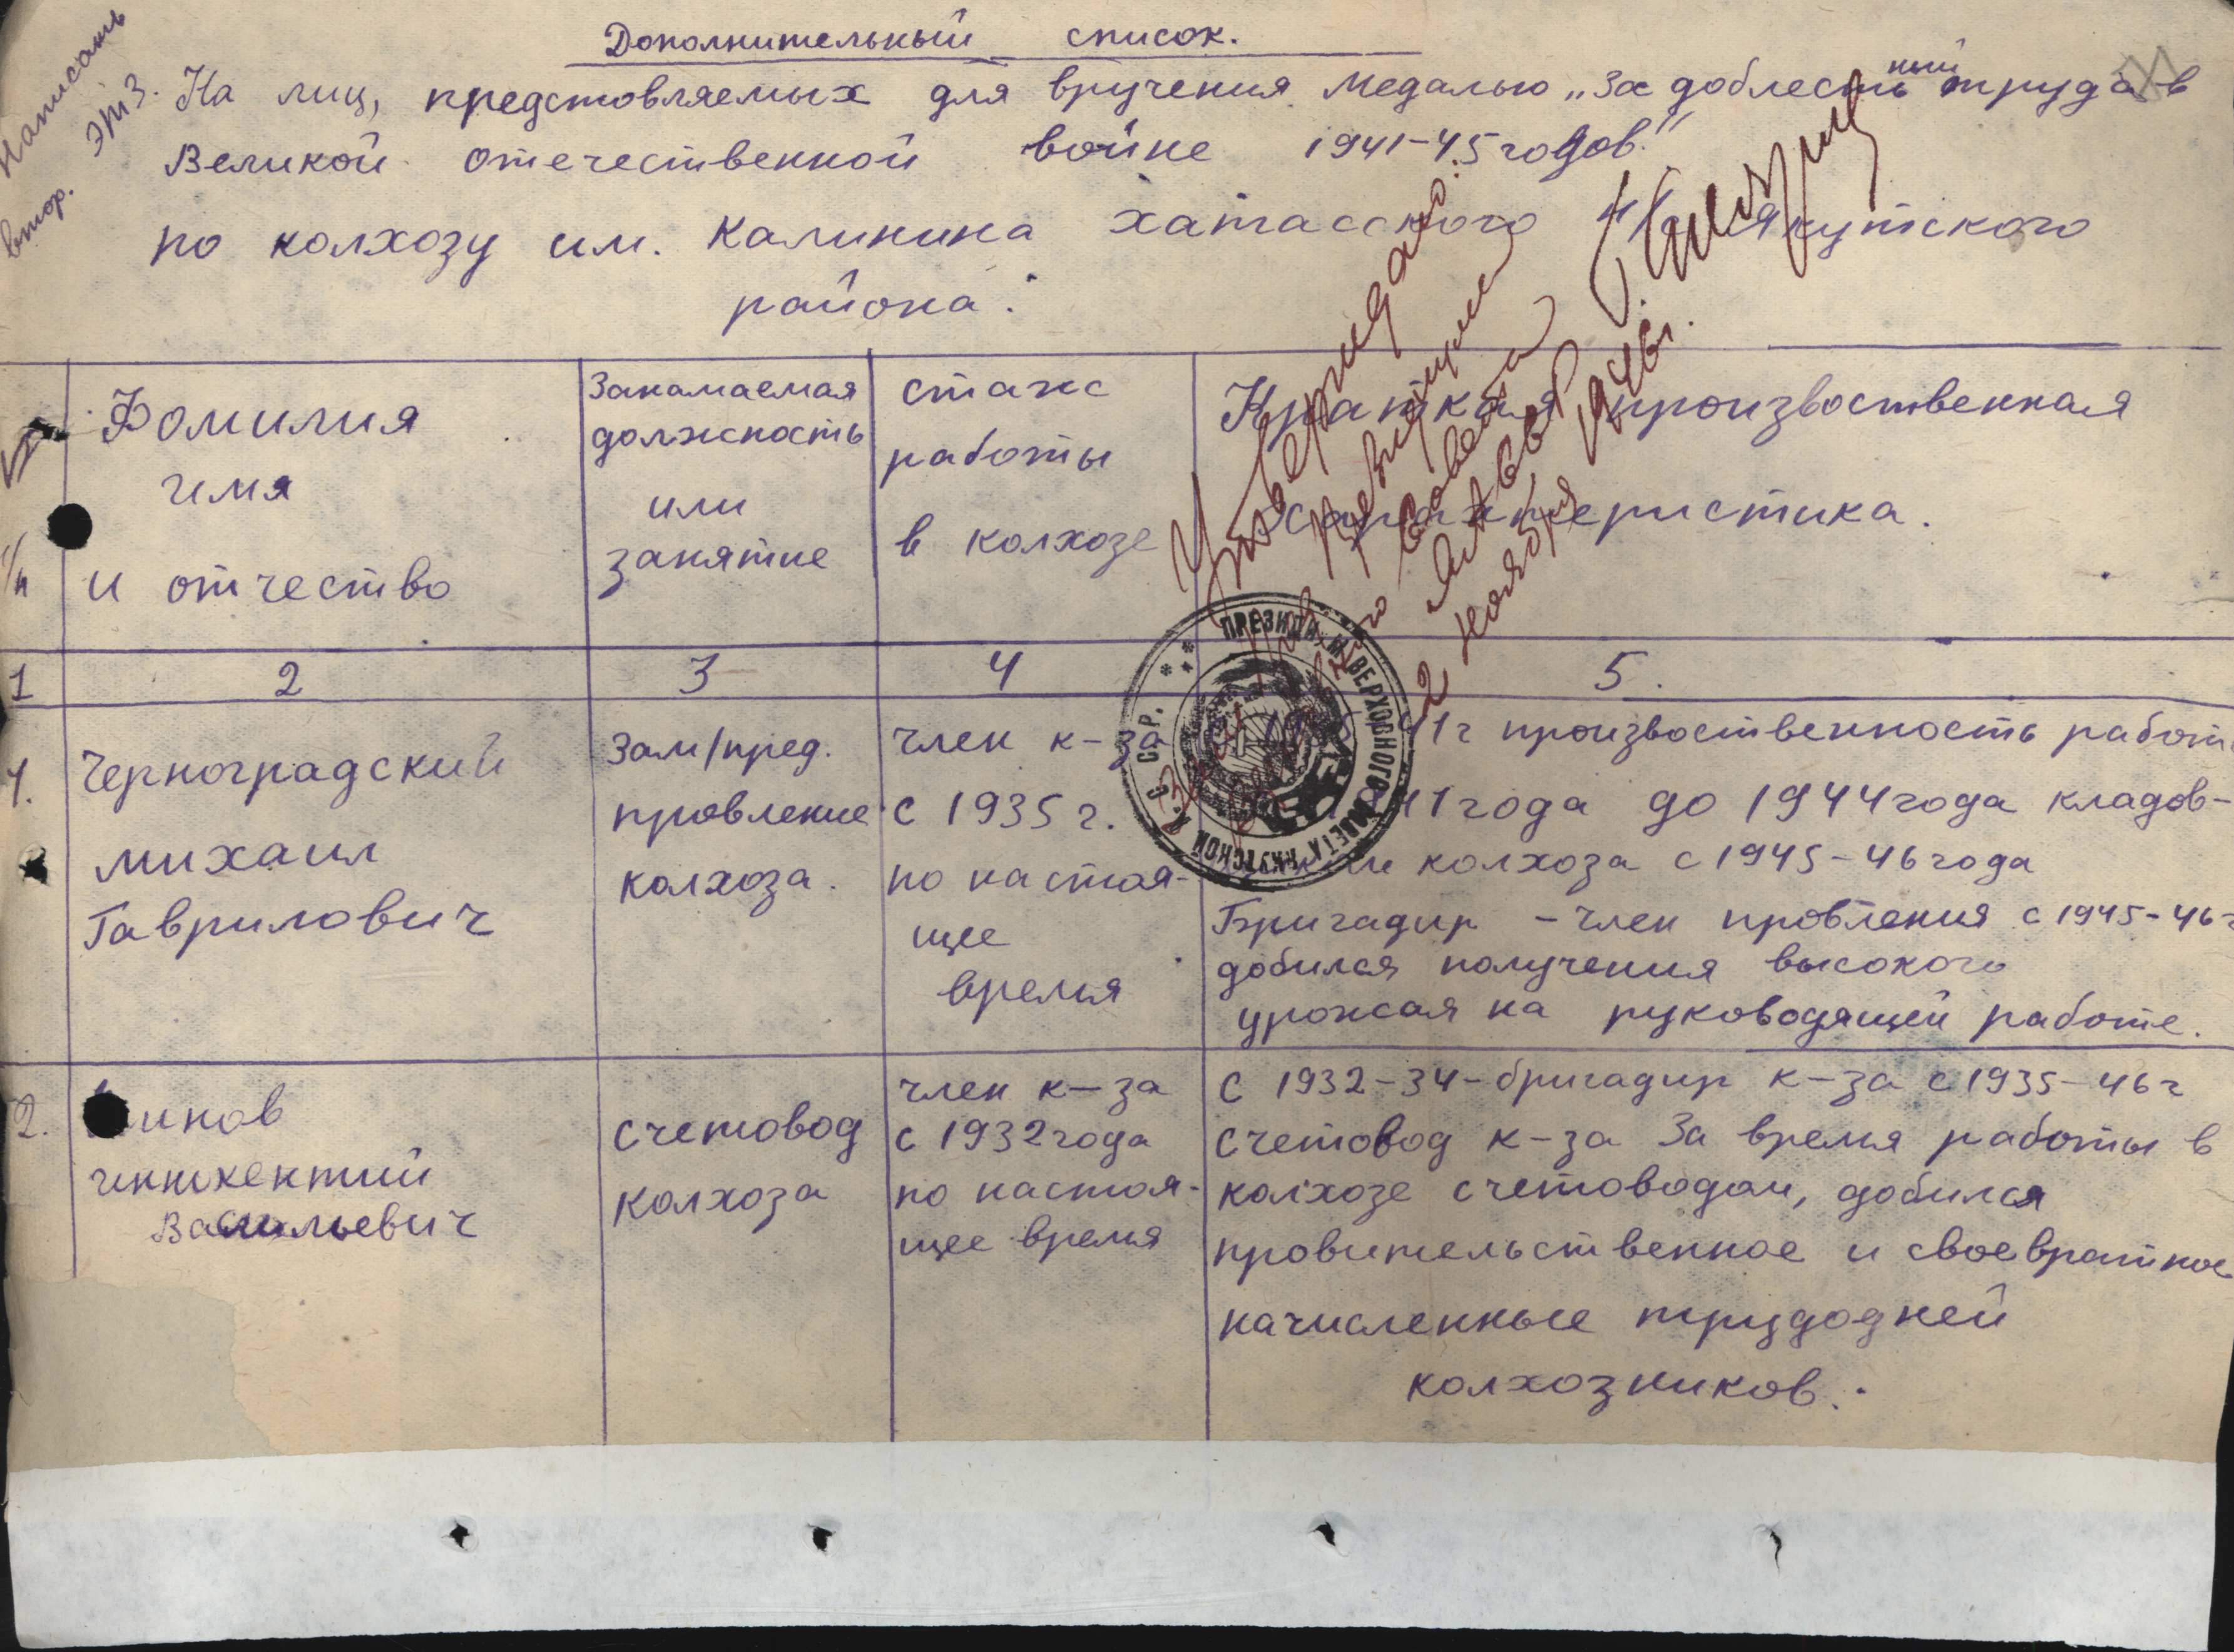 Написать
втор. ЭТЗ.
Дополнительный список.
На лиц, предстовляемых для вручения медалью „За доблестный труда в
Великой отечественной войне 1941-45 годов."
по колхозу им. Калинина хатасского н/с якутского
района.
Утверждаю:
Президиума
Верховного Совета
ЯАССР
2 ноября 1946г.
Фомилия
имя
и отчество
Занамаемая
должность
или
занятие
стаж
работы
в колхозе
Краткая произвоственная
характеристика.
1 2 3 4 5.
ПРЕЗИДИУМ ВЕРХОВНОГО СОВЕТА ЯКУТСКОЙ А.С.С.Р.
1. Черноградский
михаил
Гаврилович
Зам/пред.
провление
колхоза.
член к-за
с 1935 г.
по настоя-
щее
время
41г произвоственность работ
1941 года до 1944 года кладов-
колхоза с 1945-46 года
Бригадир - член провления с 1945-46 г
добился получения высокого
урожая на руководящей работе.
2. инов
иннокентий
Васильевич
счетовод
колхоза
член к-за
с 1932 года
по настоя-
щее время
С 1932-34-бригадир к-за с 1935-46 г
счетовод к-за За время работы в
колхозе счетоводом, добился
провительственное и своевратное
начисленные трудодней
колхозников.